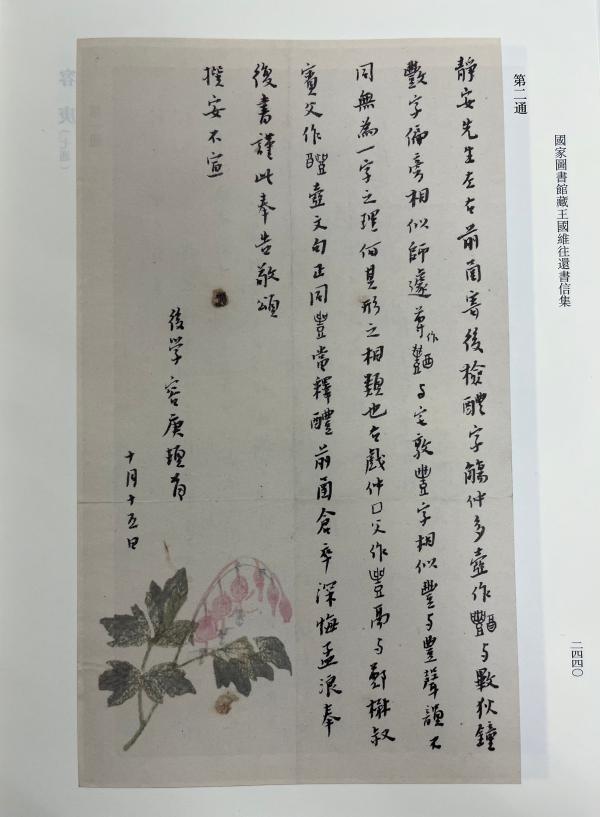 國家圖書館藏王國維往還書信集
二四四〇
第二通
靜安先生左右前函寄後檢醴字觴仲多壺作與㪤狄鐘
㪤字偏旁相似師遽尊作與宅敦豐字相似豊與豐聲韻不
同無為一字之理何其形之相類也右戲仲囗父作豐鬲與鄭楙叔
賓父作醴壺文句正同豐當釋醴前函倉卒深悔孟浪奉
復書謹此奉告敬頌
撰安不宣
後學容庚頓首
十月十五日
容庚（七通）